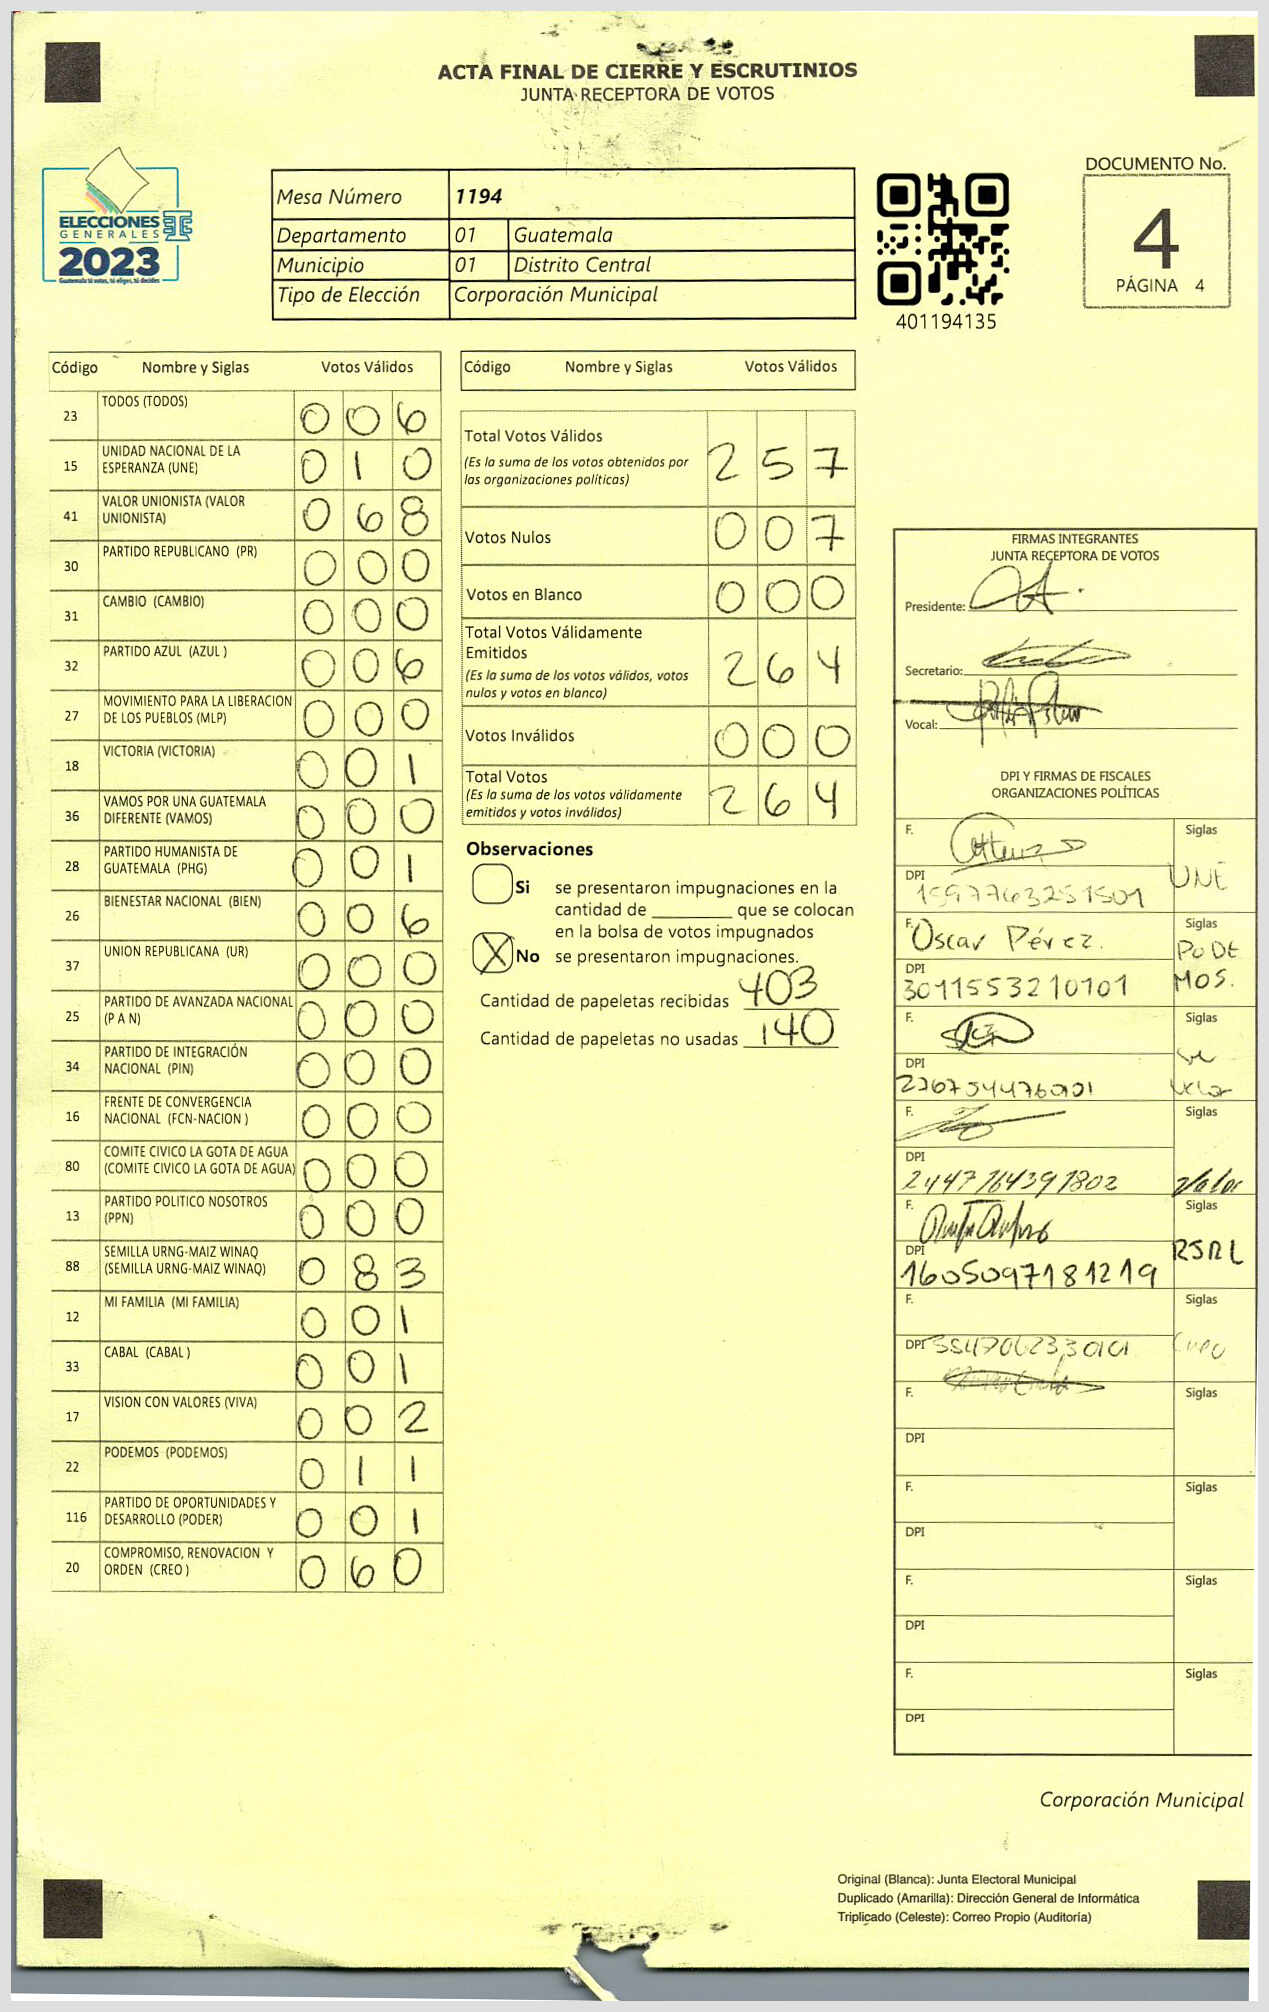 ACTA FINAL DE CIERRE Y ESCRUTINIOS
JUNTA RECEPTORA DE VOTOS
ELECCIONES
GENERALES
2023
Guatemala tú votas, tú eliges, tú decides
Mesa Número 1194
Departamento 01 Guatemala
Municipio 01 Distrito Central
Tipo de Elección Corporación Municipal
401194135
DOCUMENTO No.
4
PÁGINA 4
Código Nombre y Siglas Votos Válidos
23 TODOS (TODOS) 0 0 6
15 UNIDAD NACIONAL DE LA
ESPERANZA (UNE) 0 1 0
41 VALOR UNIONISTA (VALOR
UNIONISTA) 0 6 8
30 PARTIDO REPUBLICANO (PR) 0 0 0
31 CAMBIO (CAMBIO) 0 0 0
32 PARTIDO AZUL (AZUL ) 0 0 6
27 MOVIMIENTO PARA LA LIBERACION
DE LOS PUEBLOS (MLP) 0 0 0
18 VICTORIA (VICTORIA) 0 0 1
36 VAMOS POR UNA GUATEMALA
DIFERENTE (VAMOS) 0 0 0
28 PARTIDO HUMANISTA DE
GUATEMALA (PHG) 0 0 1
26 BIENESTAR NACIONAL (BIEN) 0 0 6
37 UNION REPUBLICANA (UR) 0 0 0
25 PARTIDO DE AVANZADA NACIONAL
(P A N) 0 0 0
34 PARTIDO DE INTEGRACIÓN
NACIONAL (PIN) 0 0 0
16 FRENTE DE CONVERGENCIA
NACIONAL (FCN-NACION ) 0 0 0
80 COMITE CIVICO LA GOTA DE AGUA
(COMITE CIVICO LA GOTA DE AGUA) 0 0 0
13 PARTIDO POLITICO NOSOTROS
(PPN) 0 0 0
88 SEMILLA URNG-MAIZ WINAQ
(SEMILLA URNG-MAIZ WINAQ) 0 8 3
12 MI FAMILIA (MI FAMILIA) 0 0 1
33 CABAL (CABAL ) 0 0 1
17 VISION CON VALORES (VIVA) 0 0 2
22 PODEMOS (PODEMOS) 0 1 1
116 PARTIDO DE OPORTUNIDADES Y
DESARROLLO (PODER) 0 0 1
20 COMPROMISO, RENOVACION Y
ORDEN (CREO ) 0 6 0
Código Nombre y Siglas Votos Válidos
Total Votos Válidos 2 5 7
(Es la suma de los votos obtenidos por
las organizaciones políticas)
Votos Nulos 0 0 7
Votos en Blanco 0 0 0
Total Votos Válidamente
Emitidos 2 6 4
(Es la suma de los votos válidos, votos
nulos y votos en blanco)
Votos Inválidos 0 0 0
Total Votos 2 6 4
(Es la suma de los votos válidamente
emitidos y votos inválidos)
Observaciones
Si se presentaron impugnaciones en la
cantidad de ________ que se colocan
en la bolsa de votos impugnados
X No se presentaron impugnaciones.
Cantidad de papeletas recibidas 403
Cantidad de papeletas no usadas 140
FIRMAS INTEGRANTES
JUNTA RECEPTORA DE VOTOS
Presidente:
Secretario:
Vocal:
DPI Y FIRMAS DE FISCALES
ORGANIZACIONES POLÍTICAS
F. Siglas
DPI UNE
1597763251501
F. Oscar Pérez. Siglas
DPI PODE
3011553210101 MOS.
F. Siglas
DPI
F. Siglas
DPI
2447764391802 Valor
F. Siglas
DPI
1605097181219
F. Siglas
DPI Creo
F. Siglas
DPI
F. Siglas
DPI
F. Siglas
DPI
F. Siglas
DPI
Corporación Municipal
Original (Blanca): Junta Electoral Municipal
Duplicado (Amarilla): Dirección General de Informática
Triplicado (Celeste): Correo Propio (Auditoría)